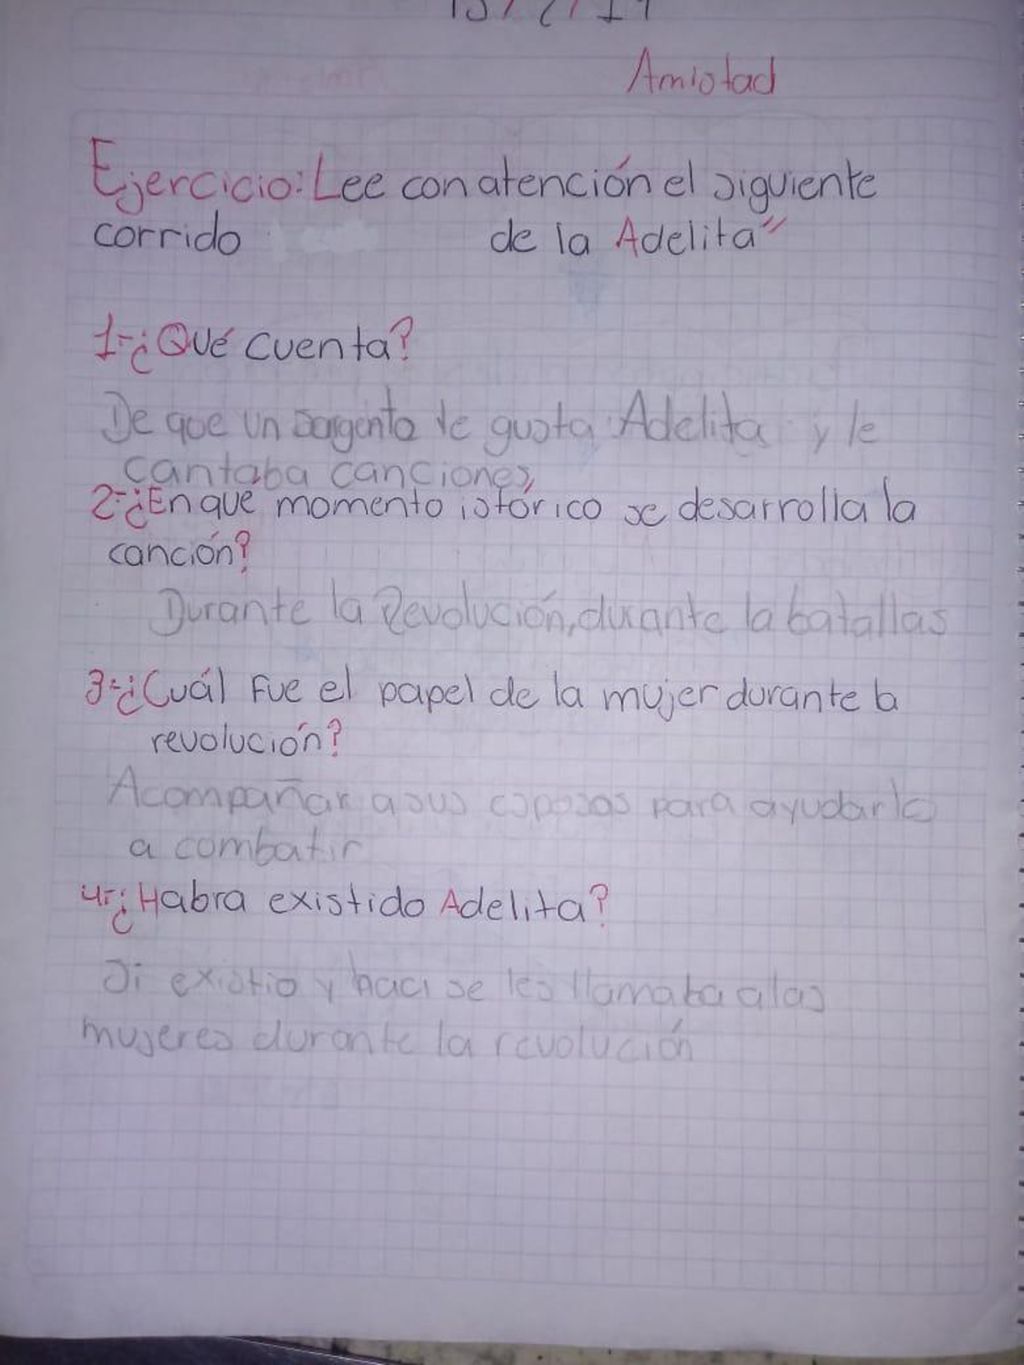 Amistad
Ejercicio: Lee con atención el siguiente
corrido de la Adelita"
1-¿Qué cuenta?
De que un sargento le gusta Adelita y le
cantaba canciones,
2-¿En que momento istórico se desarrolla la
canción?
Durante la Revolución, durante la batallas
3-¿Cuál Fue el papel de la mujer durante la
revolución?
Acompañar a sus esposos para ayudarlo
a combatir
4-¿Habra existido Adelita?
Si existio y haci se les llamaba a las
mujeres durante la revolución